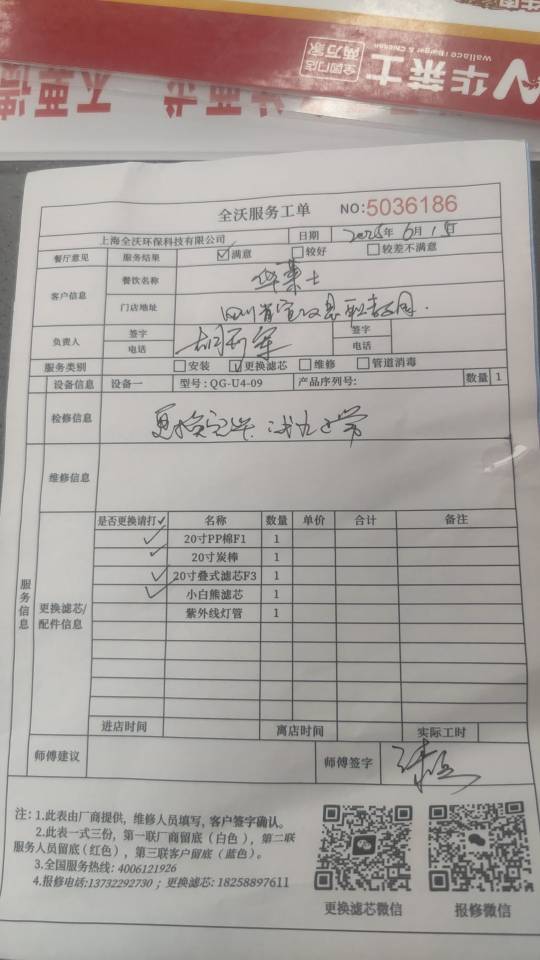 华莱士
Wallace | Burger & Chicken
全国门店
两万家
全沃服务工单 NO:5036186
上海全沃环保科技有限公司 日期 2025年6月1日
餐厅意见 服务结果 ☑满意 □较好 □较差不满意
客户信息 餐饮名称 华莱士
门店地址 四川省宣汉县职教园.
负责人 签字 签字
电话 电话
服务类别 □安装 ☑更换滤芯 □维修 □管道消毒
设备信息 设备一 型号:QG-U4-09 产品序列号: 数量 1
检修信息 更换完毕.试机正常
维修信息
服务信息
更换滤芯/配件信息
是否更换请打✓ 名称 数量 单价 合计 备注
✓ 20寸PP棉F1 1
✓ 20寸炭棒 1
✓ 20寸叠式滤芯F3 1
✓ 小白熊滤芯 1
紫外线灯管 1
进店时间 离店时间 实际工时
师傅建议 师傅签字
注:1.此表由厂商提供，维修人员填写，客户签字确认。
2.此表一式三份，第一联厂商留底（白色），第二联
服务人员留底(红色)，第三联客户留底（蓝色）。
3.全国服务热线:4006121926
4.报修电话:13732292730；更换滤芯:18258897611
更换滤芯微信 报修微信